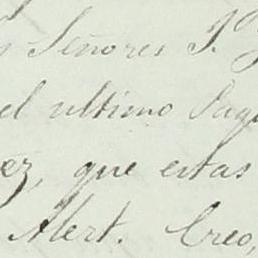 Señores J.
el ultimo Paq
ez, que estas
Mert. Creo,